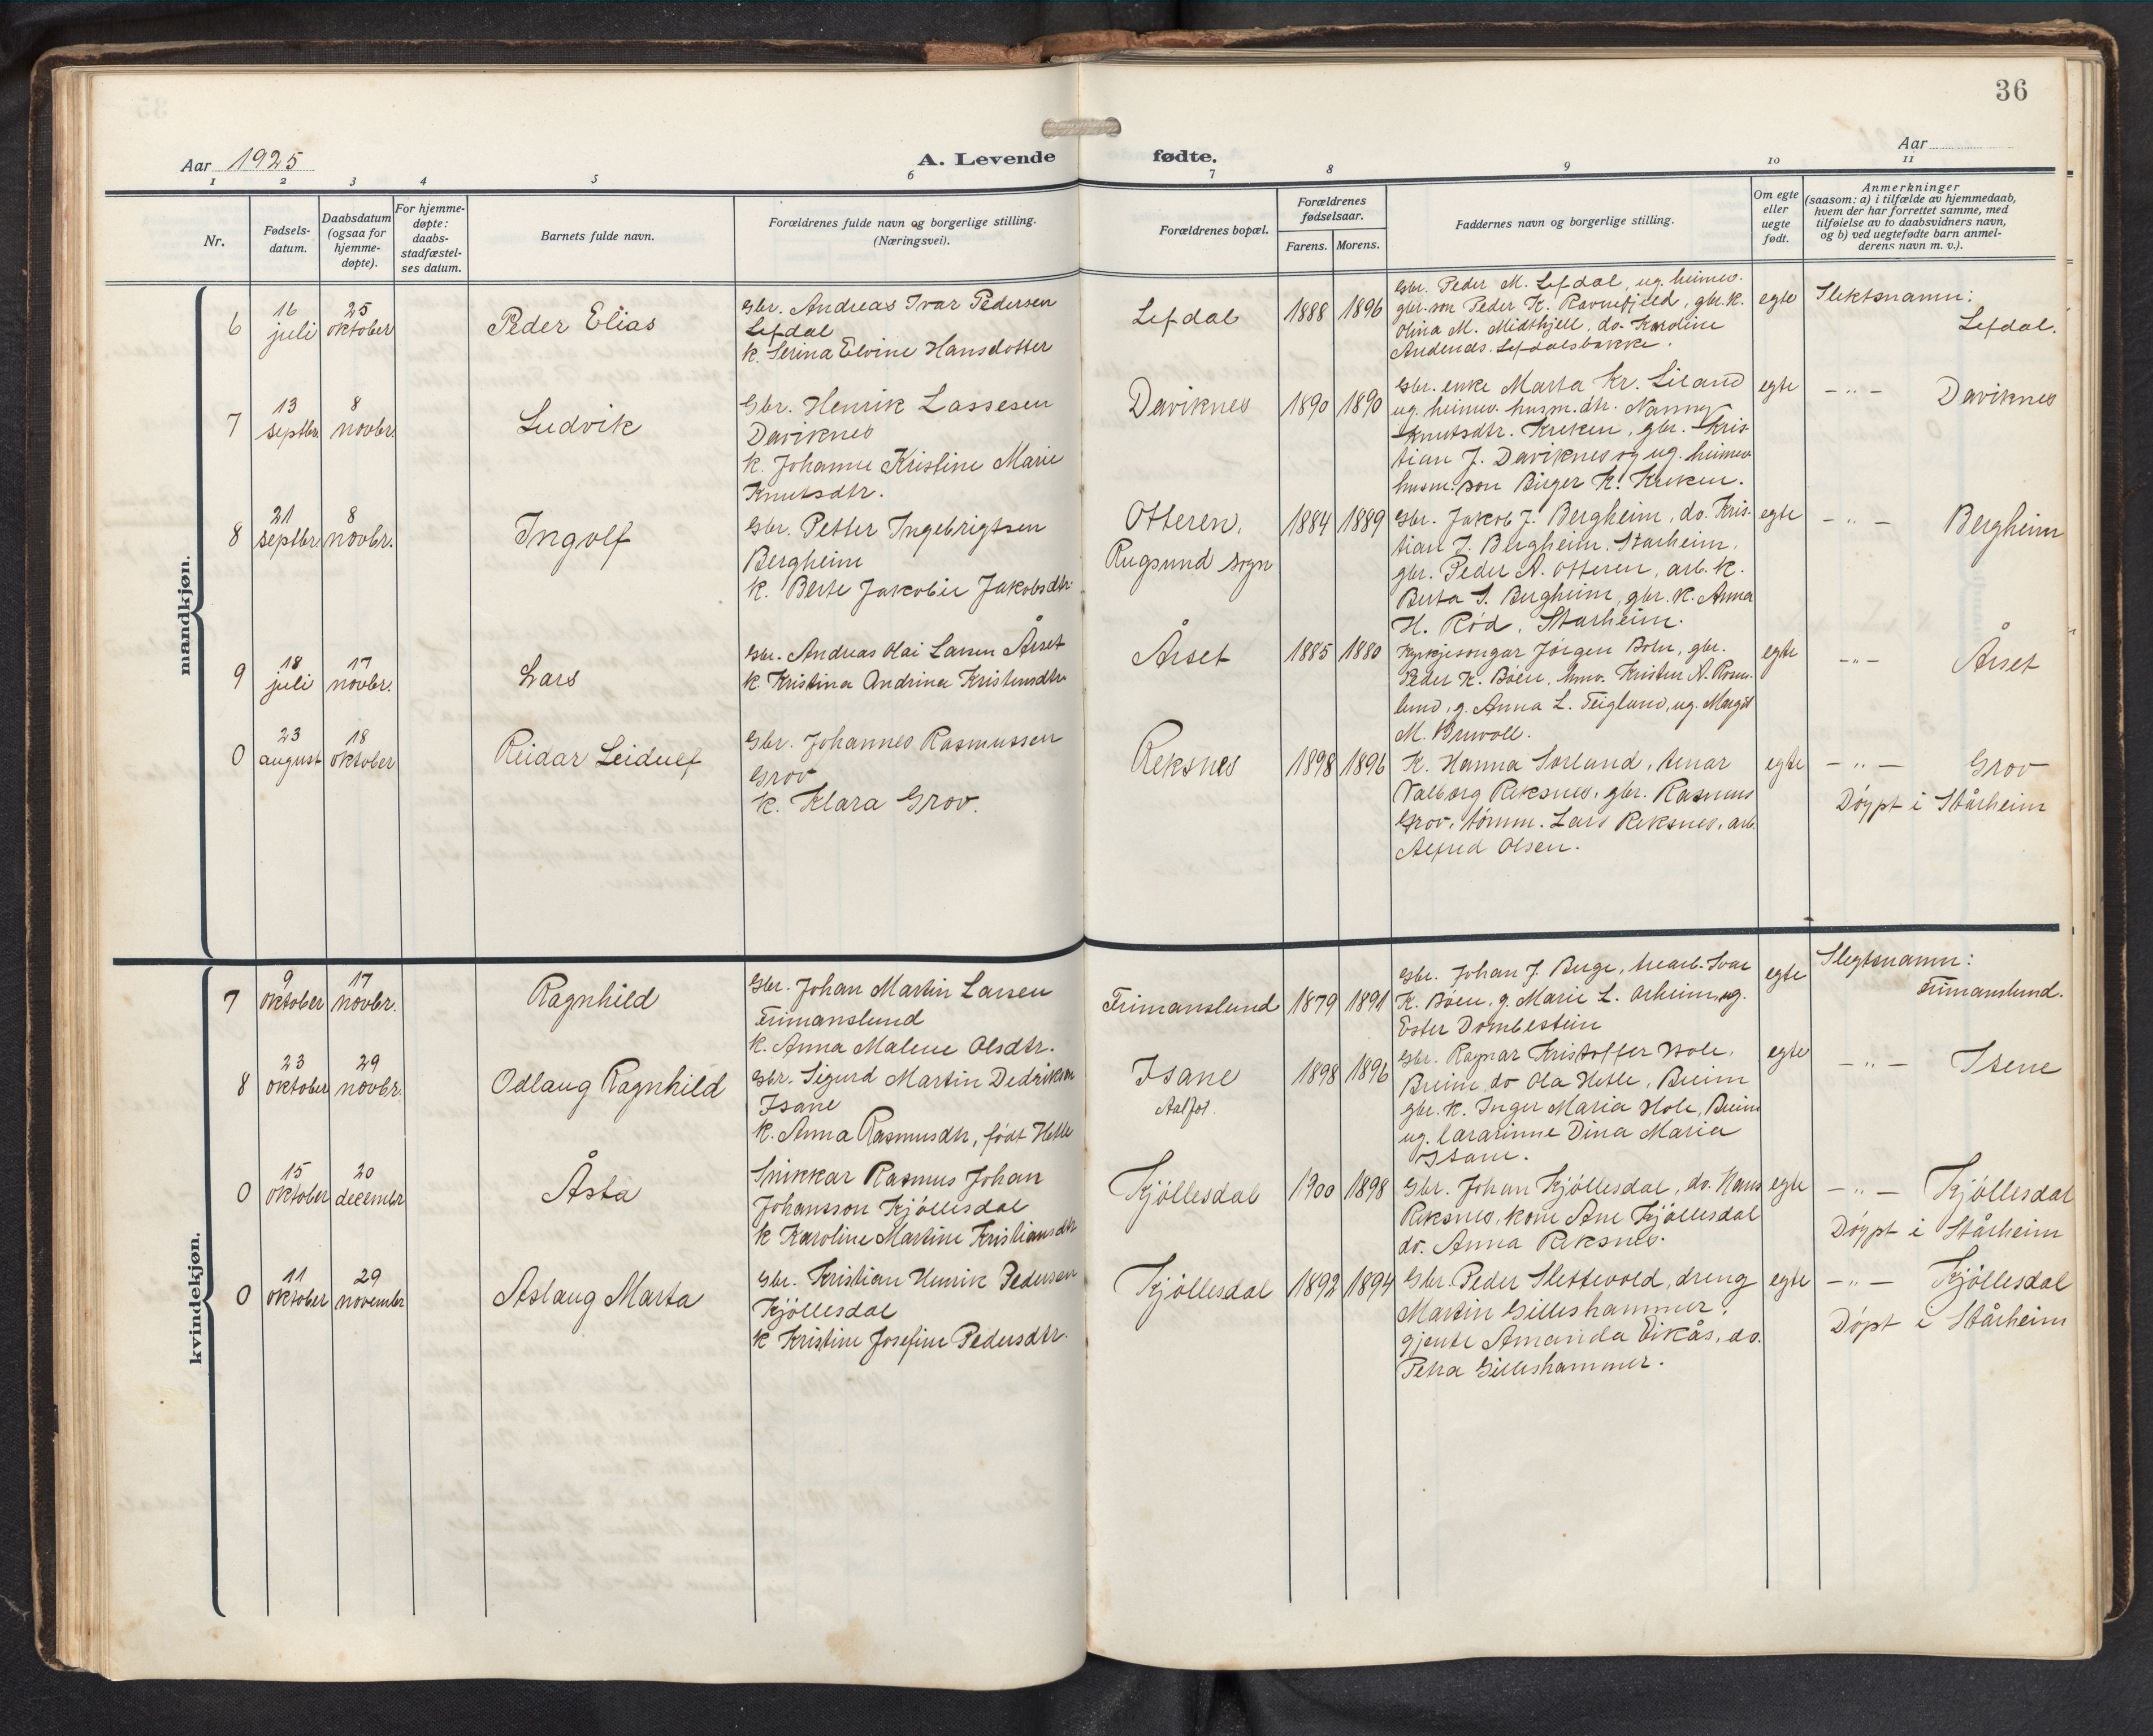 36
Aar 1925
A. Levende fødte.
Aar
1 2 3 4 5 6 7 8 9 10 11
Nr.
Fødsels-
datum.
Daabsdatum
(ogsaa for
hjemme-
døpte).
For hjemme-
døpte:
daabs-
stadfæstel-
ses datum.
Barnets fulde navn.
Forældrenes fulde navn og borgerlige stilling.
(Næringsvei).
Forældrenes bopæl.
Forældrenes
fødselsaar.
Farens. Morens.
Faddernes navn og borgerlige stilling.
Om egte
eller
uegte
født.
Anmerkninger
(saasom: a) i tilfælde av hjemmedaab,
hvem der har forrettet samme, med
tilføielse av to daabsvidners navn,
og b) ved uegtefødte barn anmel-
derens navn m. v.).
mandkjøn.
6
16
juli
25
oktober
Peder Elias
Gbr. Andreas Ivar Pedersen
Lefdal
k. Serina Elvine Hansdotter
Lefdal
1888
1896
Gbr. Peder M. Lefdal, ug. heimev.
gbr. son Peder K. Ravnefjeld, gbr. k.
Olina M. Midthjell, do. Karoline
Andends. Lefdalsbakke.
egte
Slektsnamn:
Lefdal.
7
13
septbr.
8
novbr.
Ludvik
Gbr. Henrik Lassesen
Daviknes
k. Johanne Kristine Marie
Knutsdtr.
Daviknes
1890
1890
Gbr. enke Marta Kr. Liland
ug. heimev. husm. dtr. Nanny
Knutsdtr. Kreken, gbr. Kris-
tian J. Daviknes og ug. heimev
husm. son Birger K. Kreken.
egte
—"— Daviknes
8
21
septbr.
8
novbr.
Ingolf
Gbr. Petter Ingebrigtsen
Bergheim
k. Berte Jakobie Jakobsdtr.
Otteren,
Rugsund sogn
1884
1889
Gbr. Jakob J. Bergheim, do. Kris-
tian J. Bergheim, Starheim,
gbr. Peder A. Otteren, arb. k.
Berta S. Bergheim, gbr. k. Anna
H. Rød, Starheim.
egte
—"— Bergheim
9
18
juli
17
novbr.
Lars
Gbr. Andreas Olai Larsen Årset
k. Kristina Andrina Kristensdtr.
Årset
1885
1880
Kyrkjesongar Jørgen Bolu, gbr.
Peder K. Bøen, hmv. Kristen A. Rosen-
lund, g. Anna L. Teiglund, ug. Margit
M. Bruvoll.
egte
—"— Årset
0
23
august
18
oktober
Reidar Leidulf
Gbr. Johannes Rasmussen
Grov
k. Klara Grov.
Reksnes
1898
1896
K. Hanna Sorland, tenar
Valborg Reksnes, gbr. Rasmus
Grov, tømm. Lars Reksnes, arb.
Alfred Olsen.
egte
—"— Grov
Døypt i Stårheim
kvindekjøn.
7
9
oktober
17
novbr.
Ragnhild
Gbr. Johan Martin Larsen
Frimanslund
k. Anna Malene Olsdtr.
Frimanslund
1879
1891
Gbr. Johan J. Berge, trearb. Ivar
K. Bøen, g. Marie L. Arheim, ug.
Ester Dombestein
egte
Slegtsnamn:
Frimanslund.
8
23
oktober
29
novbr.
Odlaug Ragnhild
Gbr. Sigurd Martin Dedrikson
Isane
k. Anna Rasmusdtr, født Hetle
Isane
Aalfot.
1898
1896
Gbr. Ragnar Kristoffer Hole,
Breim, do Ola Hetle, Breim
gbr. k. Inger Maria Hole, Breim
ug. lærarinne Dina Maria
Isane.
egte
—"— Isene
0
15
oktober
20
decembr
Åsta
Snikkar Rasmus Johan
Johansson Kjøllesdal
k Karoline Martine Kristiansdtr
Kjøllesdal
1900
1898
Gbr. Johan Kjøllesdal, do. Hans
Reksnes, kone Ane Kjøllesdal
do. Anna Reksnes.
egte
—"— Kjøllesdal
Døypt i Stårheim
0
11
oktober
29
novembr
Aslaug Marta
Gbr. Kristian Henrik Pedersen
Kjøllesdal
k Kristine Josefine Pedersdtr.
Kjøllesdal
1892
1894
Gbr. Peder Slettevold, dreng
Martin Gilleshammer,
gjente Amanda Eikås, do.
Petra Gilleshammer.
egte
—"— Kjøllesdal
Døpt i Stårheim